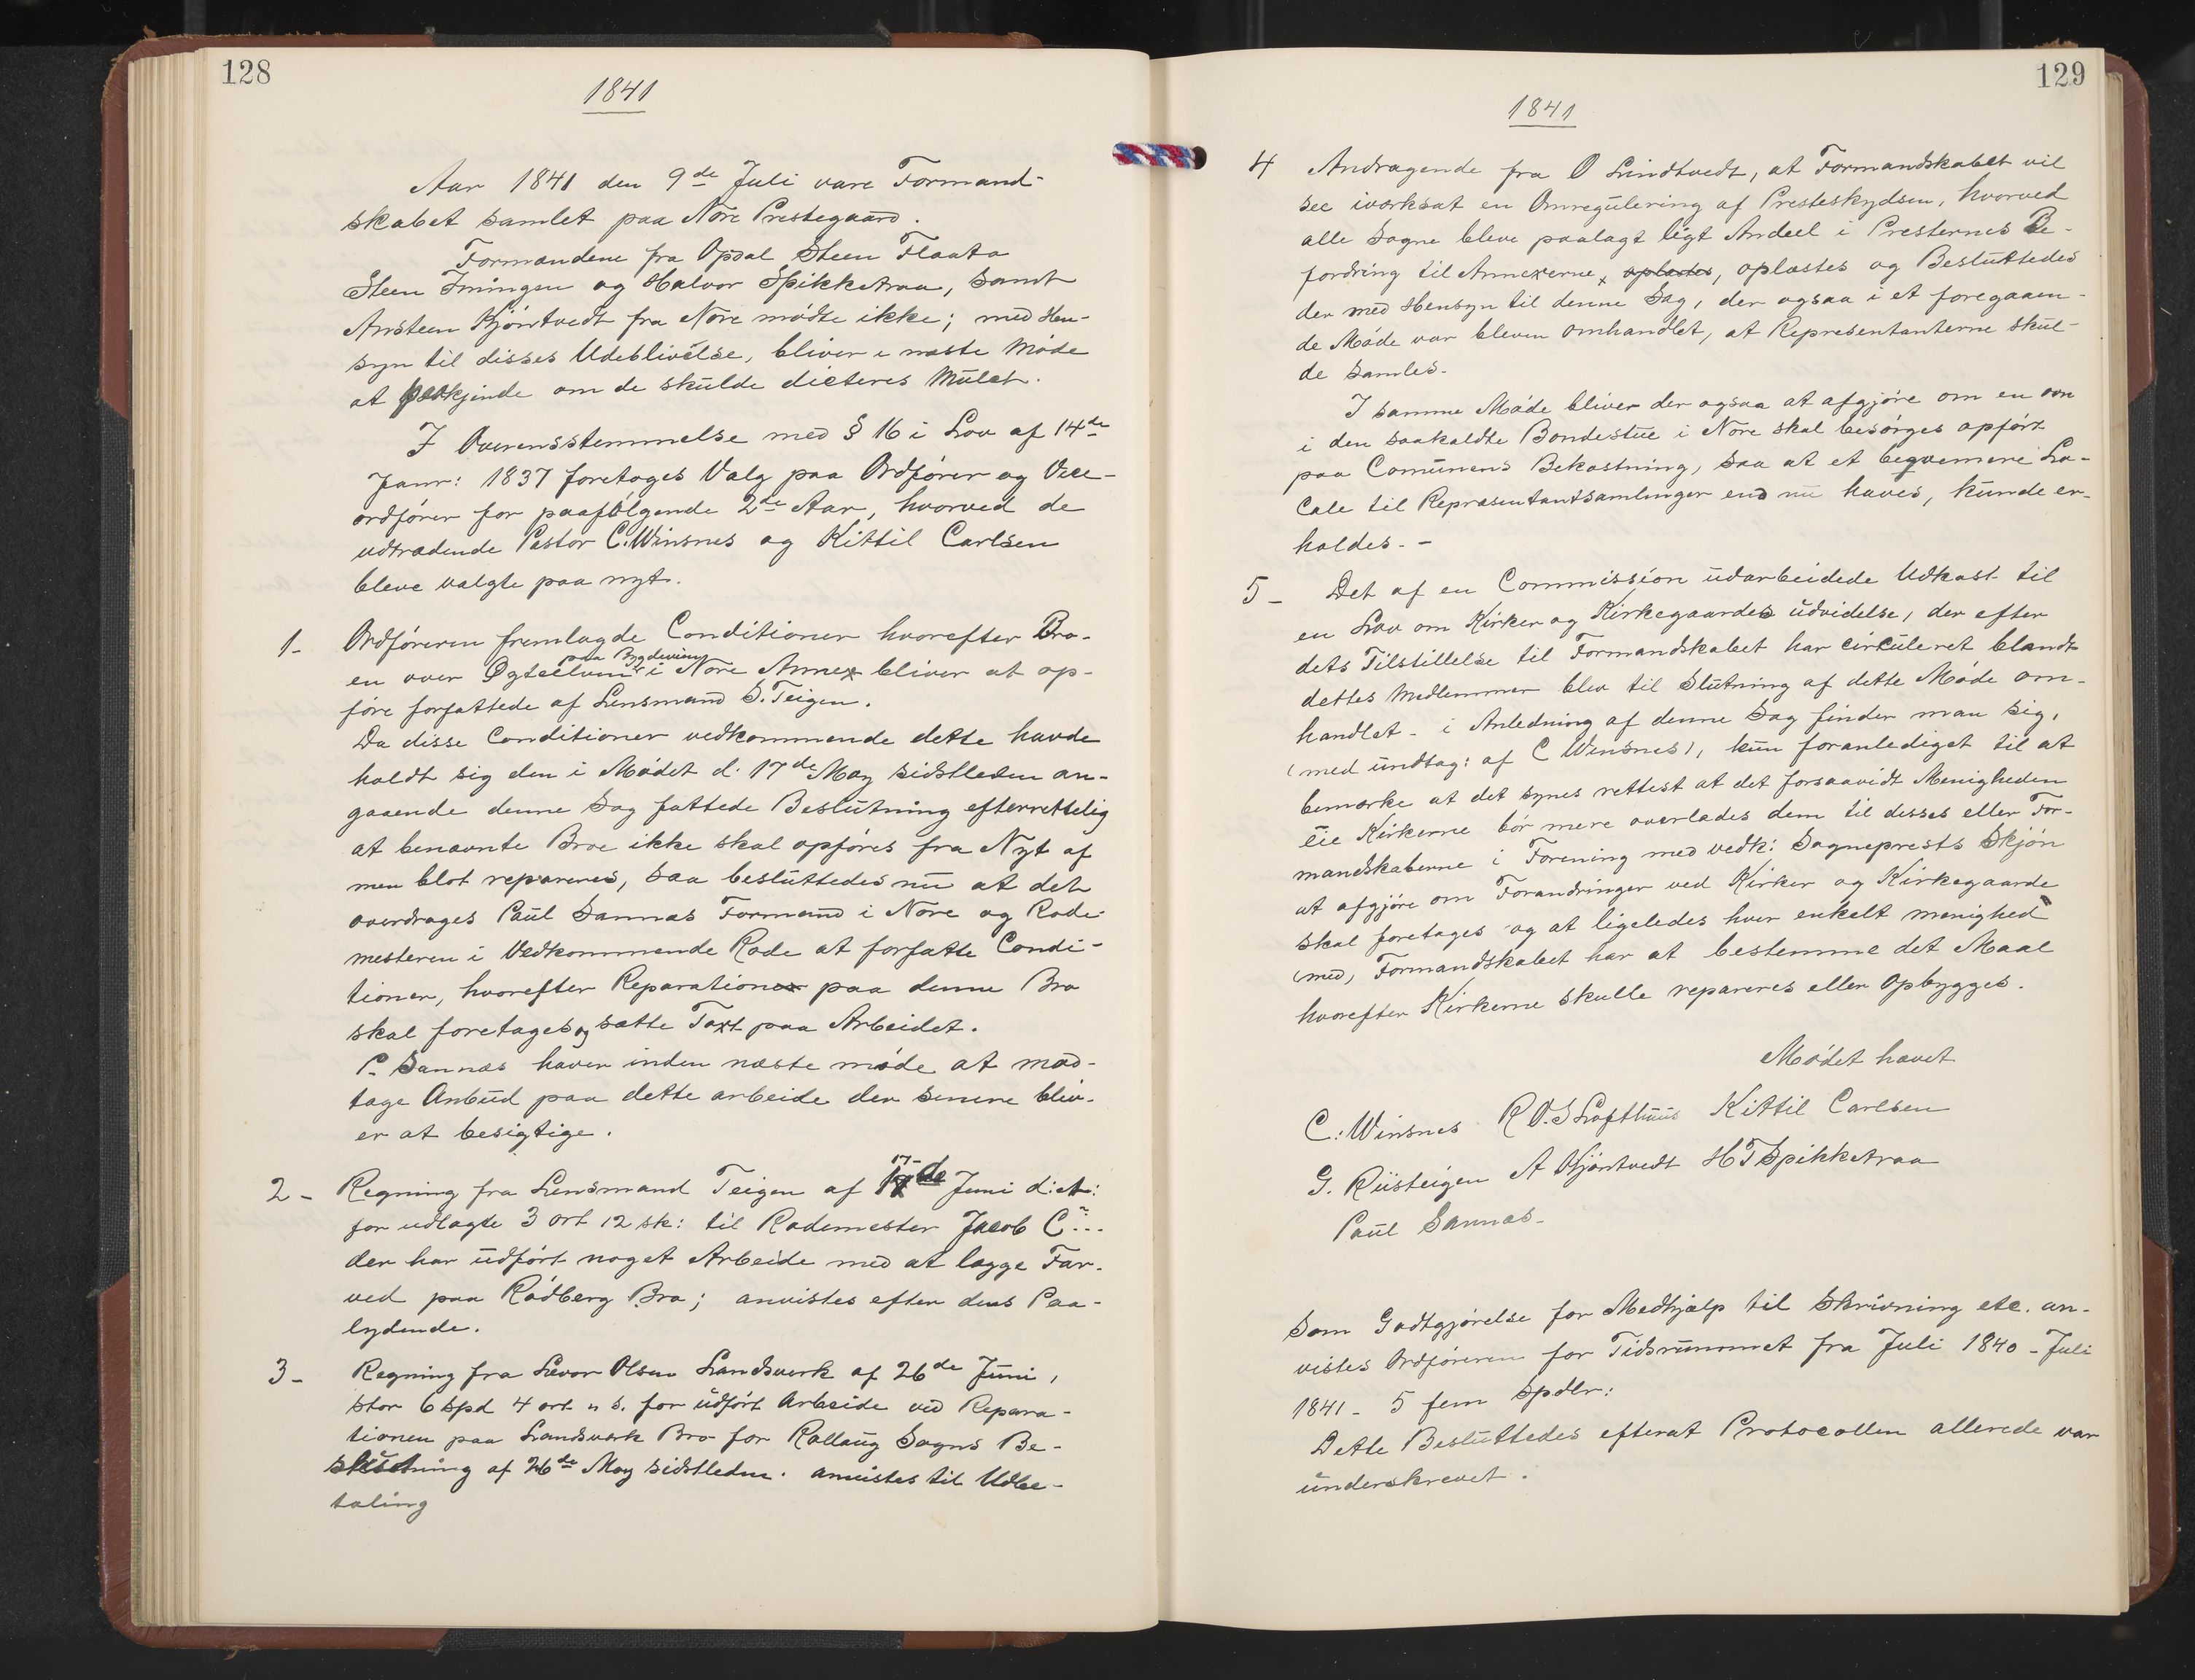 128
1841
Aar 1841 den 9de Juli vare Formand-
skabet samlet paa Nore Prestegaard.
Formændene fra Opdal Steen Flaata
Steen Iningen og Halvor Spikketraa, samt
Ansteen Kjöntvedt fra Nore mödte ikke; med Hen-
syn til disses Udeblivelse, bliver i næste Möde
at paakjende om de skulde dicteres Mulct.
I Overensstemmelse med § 16 i Lov af 14de
Janr: 1837 foretoges Valg paa Ordförer og Vice-
ordförer for paafölgende 2de Aar, hvorved de
udtrædende Pastor C. Winsnes og Kittil Carlsen
bleve valgte paa nyt.
1- Ordföreren fremlagde Conditioner hvorefter Bro-
paa Bygdevien
en over Ögteelven i Nore Annex bliver at op-
före forfattede af Lensmand S. Teigen.
Da disse Conditioner vedkommende dette havde
holdt sig den i Mödet d. 17de May sidstleden an-
gaaende denne Sag fattede Beslutning efterrettelig
at benævnte Broe ikke skal opföres fra Nyt af
men blot repareres, saa besluttedes nu at det
overdrages Paul Sannæs Formand i Nore og Rode-
mesteren i Vedkommende Rode at forfatte Condi-
tioner, hvorefter Reparationen paa denne Bro
skal foretages og sætte Taxt paa Arbeidet.
P. Sannæs haver inden næste möde at mod-
tage Anbud paa dette arbeide der senere bliv-
er at besigtige.
2- Regning fra Lensmand Teigen af 17de Juni d: A:
for udlagte 3 ort 12 sk: til Rodemester Jacob C...
der har udfört noget Arbeide med at lægge Far-
ved paa Rödberg Bro; anvistes efter dens Paa-
lydende.
3- Regning fra Levor Olsen Landsverk af 26de Juni,
stor 6 Spd 4 ort " s. for udfört Arbeide ved Repara-
tionen paa Landsverk Bro for Rollaug Sogns Be-
slutning af 26de May sidstleden. anvistes til Udbe-
taling
129
1841
4 Andragende fra O Lindtvedt, at Formandskabet vil
see iværksat en Omregulering af Presteskydsen, hvorved
alle Sogne bleve paalagt ligt Andeel i Presternes Be-
fordring til Annexerne, oplæstes, oplæstes og Besluttedes
der med Hensyn til denne Sag, der ogsaa i et foregaaen-
de Möde var bleven omhandlet, at Representanterne skul-
de samles.
I samme Möde bliver der ogsaa at afgjöre om en ovn
i den saakaldte Bondestue i Nore skal besörges opfört
paa Comunens Bekostning, saa at et beqvemere Lo-
cale til Repræsentantsamlinger end nu haves, kunde er-
holdes. -
5- Det af en Commission udarbeidede Udkast til
en Lov om Kirker og Kirkegaardes udvidelse, der efter
dets Tilstillelse til Formandskabet har circuleret blandt
dettes Medlemmer blev til Slutning af dette Möde om-
handlet - i Anledning af denne Sag finder man sig,
(med undtag: af C Winsnes), kun foranlediget til at
bemærke at det synes rettest at det forsaavidt Menigheden
eie Kirkerne bör mere overlades dem til disses eller For-
mandskaberne i Forening med vedk: Sogneprests Skjön
at afgjöre om Forandringer ved Kirker og Kirkegaarde
skal foretages og at ligeledes hver enkelt menighed
(med, Formandskabet har at bestemme det Maal
hvorefter Kirkerne skulle repareres eller Opbygges.
Mödet hævet
C: Winsnes R O.S Lofthuus Kittil Carlsen
G. Riisteigen A Kjöntvedt H T Spikketraa
Paul Sannæs-
Som Godtgjörelse for Medhjælp til Skrivning etc. an-
vistes Ordföreren for Tidsrummet fra Juli 1840 - Juli
1841 - 5 fem Spdlr:
Dette Besluttedes efterat Protocollen allerede var
underskrevet.